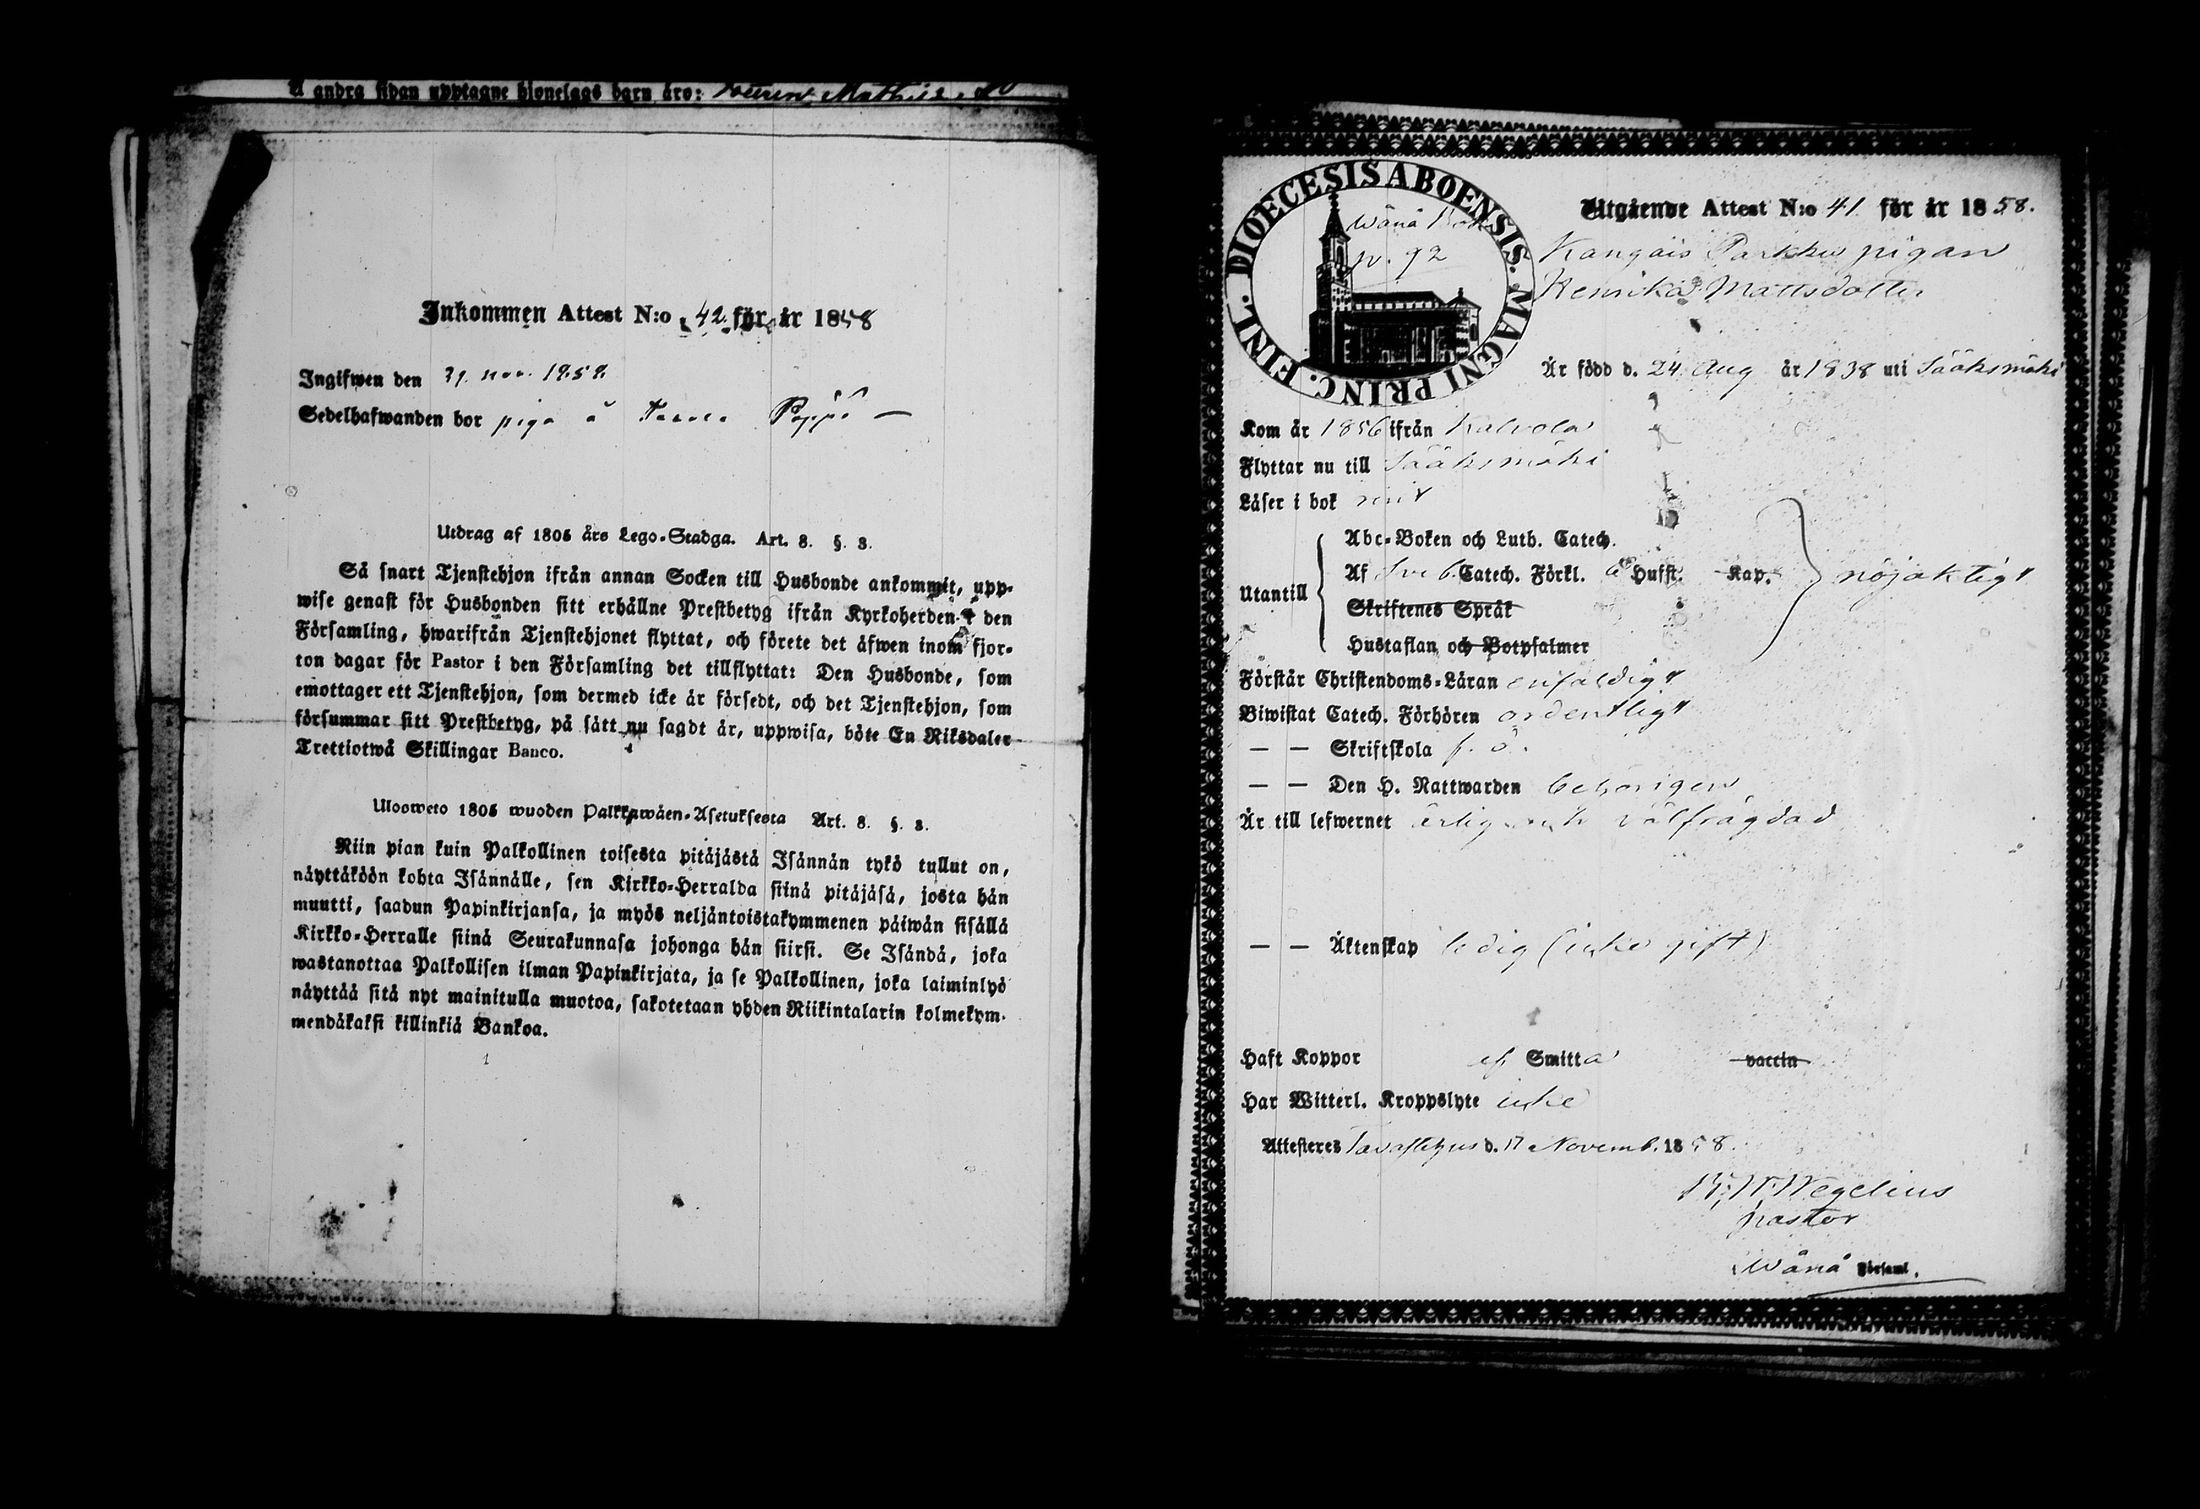 Å andra sidan upptagne hjonelags barn äro:
Inkommen Attest N:o 42 för år 1858
Ingifwen den nov. 1858
Sedelhafwanden bor piga å
Utdrag af 1805 års Lego-Stadga. Art. 8. §. 3.
Så snart Tjenstehjon ifrån annan Socken till Husbonde ankommit, upp-
wise genast för Husbonden sitt erhållne Prestbetyg ifrån Kyrkoherden i den
Församling, hwarifrån Tjenstehjonet flyttat, och förete det äfwen inom fjor-
ton dagar för Pastor i den Församling det tillflyttat: Den Husbonde, som
emottager ett Tjenstehjon, som dermed icke är försedt, och det Tjenstehjon, som
försummar sitt Prestbetyg, på sätt nu sagdt är, uppwisa, böte En Riksdaler
Trettiotwå Skillingar Banco.
Ulosweto 1805 wuoden Palkkawäen-Asetuksesta Art. 8. §. 3.
Niin pian kuin Palkollinen toisesta pitäjästä Isännän tykö tullut on,
näyttäköön kohta Isännälle, sen Kirkko-Herralda siinä pitäjäsä, josta hän
muutti, saadun Papinkirjansa, ja myös neljäntoistakymmenen päiwän sisällä
Kirkko-Herralle siinä Seurakunnasa johonga hän siirsi. Se Isändä, joka
wastanottaa Palkollisen ilman Papinkirjata, ja se Palkollinen, joka laiminlyö
näyttää sitä nyt mainitulla muotoa, sakotetaan yhden Riikintalarin kolmekym-
mendäkaksi killinkiä Bankoa.
DIOECESIS ABOENSIS. MAGNI PRINC. FINL.
Wånå Bok
p. 92
Utgående Attest N:o 41 för år 1858.
Kangais Parkku pigan
Henrika Mattsdotter
Är född d. 24 Aug år 1838 uti Sääksmäki
Kom år 1856 ifrån Kalvola
Flyttar nu till Sääksmäki
Läser i bok rent
Utantill
Abc-Boken och Luth. Catech.
Af Sveb. Catech. Förkl. Hufst. Kap.
Skriftenes Språk
Hustaflan och Botpsalmer
nöjaktigt
Förstår Christendoms-Läran enfaldigt
Biwistat Catech. Förhören ordentligt
— — Skriftskola
— — Den H. Nattwarden behörigen
Är till lefwernet ärlig och välfrägdad
— — Äktenskap ledig (icke gift)
Haft Koppor af Smitta vaccin
Har Witterl. Kroppslyte icke
Attesteres Tavastehus d. 17 Novemb. 1858.
Wegelius
pastor
Wånå Församl.